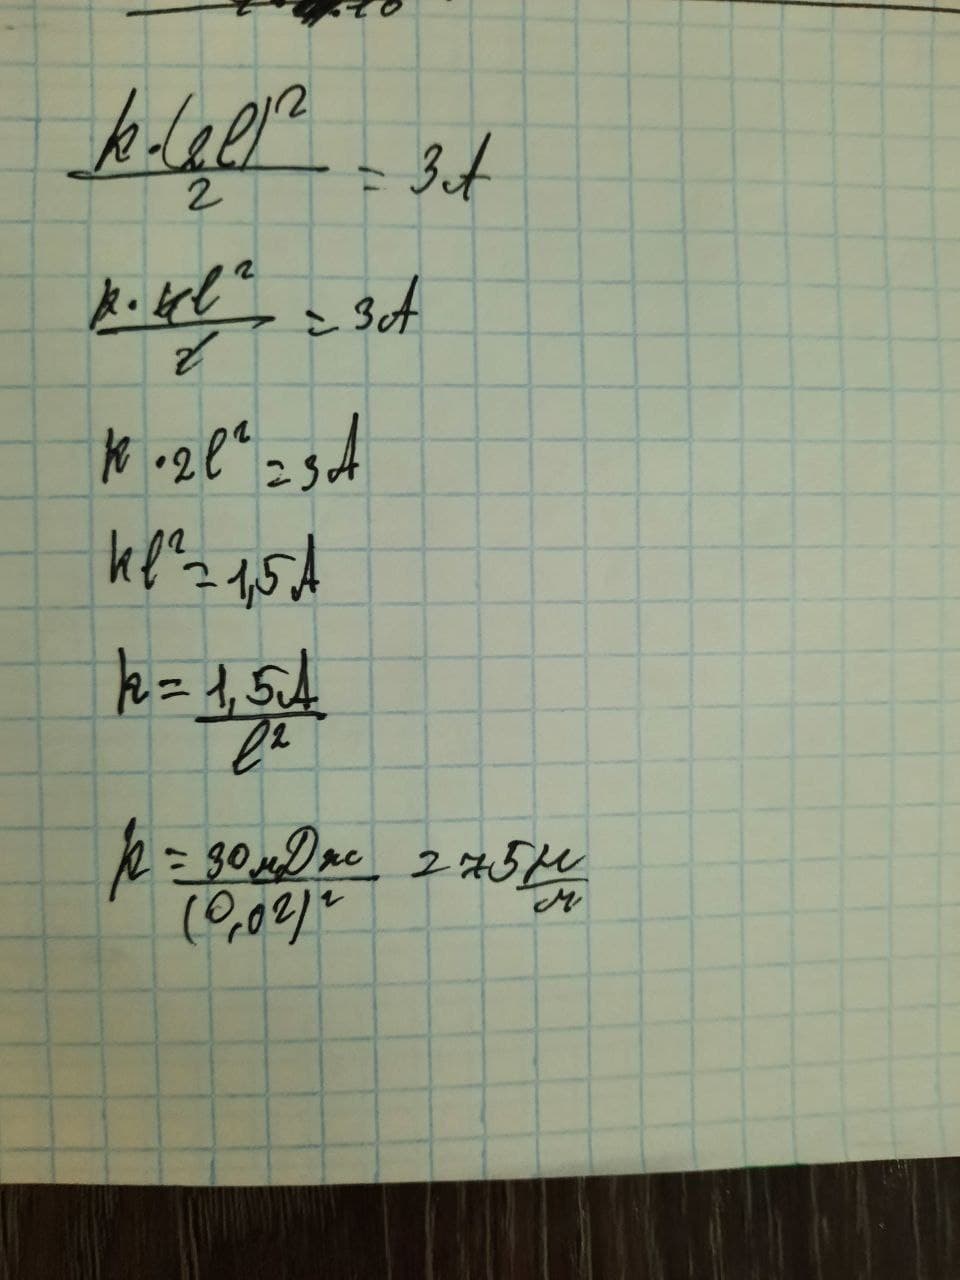 k·(2l)²/2 = 3A
k·4l²/2 = 3A
k·2l² = 3A
kl² = 1,5A
k = 1,5A/l²
k = 30мДж/(0,02)² = 75 Н/м